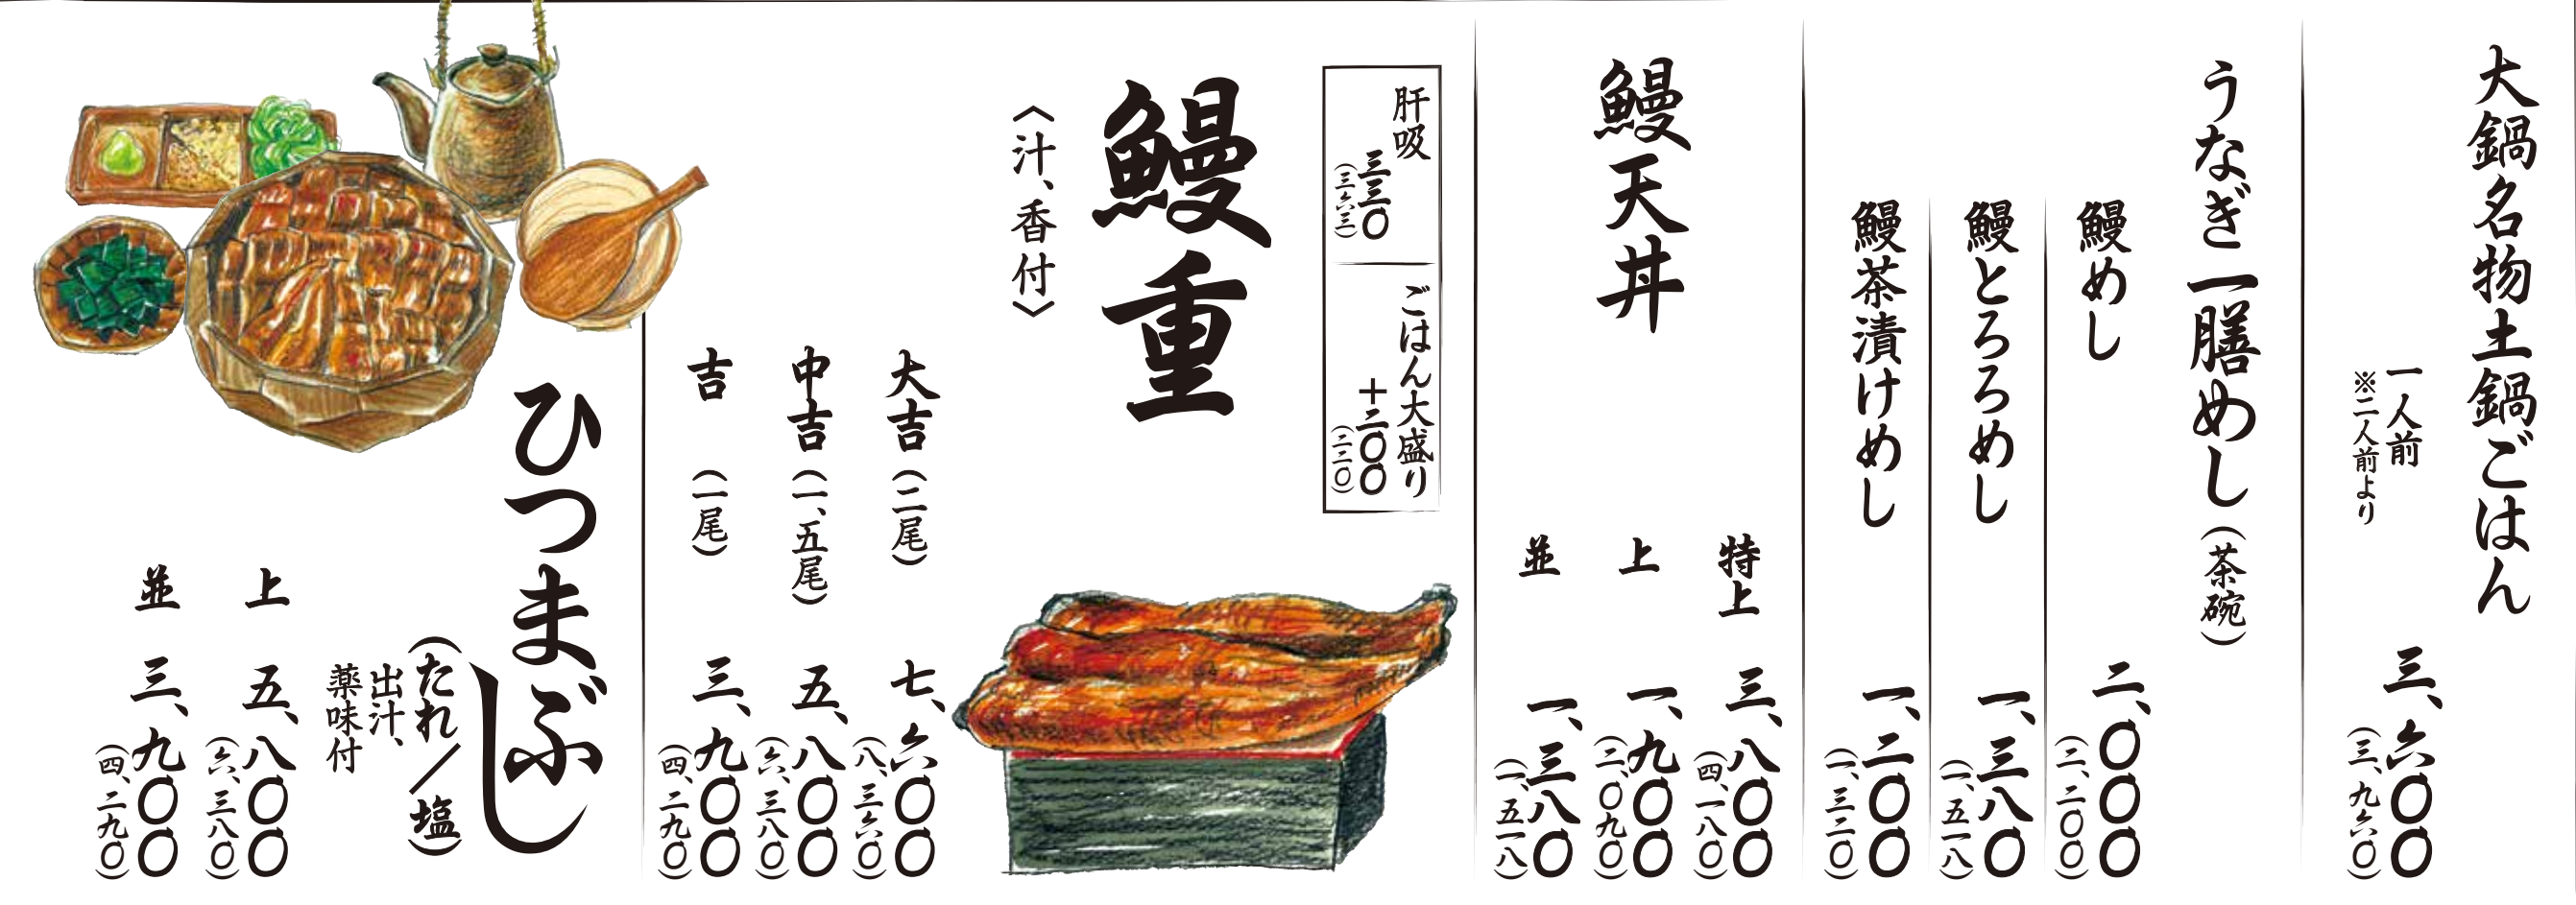 大鍋名物土鍋ごはん
一人前 三、六〇〇
※二人前より (三、九六〇)
うなぎ一膳めし(茶碗)
鰻めし 二、〇〇〇
(二、二〇〇)
鰻とろろめし 一、三八〇
(一、五一八)
鰻茶漬けめし 一、二〇〇
(一、三二〇)
鰻天丼
特上 三、八〇〇
(四、一八〇)
上 一、九〇〇
(二、〇九〇)
並 一、三八〇
(一、五一八)
肝吸 三三〇
(三六三)
ごはん大盛り
+二〇〇
(二二〇)
鰻重
〈汁、香付〉
大吉(二尾) 七、六〇〇
(八、三六〇)
中吉(一、五尾) 五、八〇〇
(六、三八〇)
吉(一尾) 三、九〇〇
(四、二九〇)
ひつまぶし
(たれ/塩)
出汁、
薬味付
上 五、八〇〇
(六、三八〇)
並 三、九〇〇
(四、二九〇)